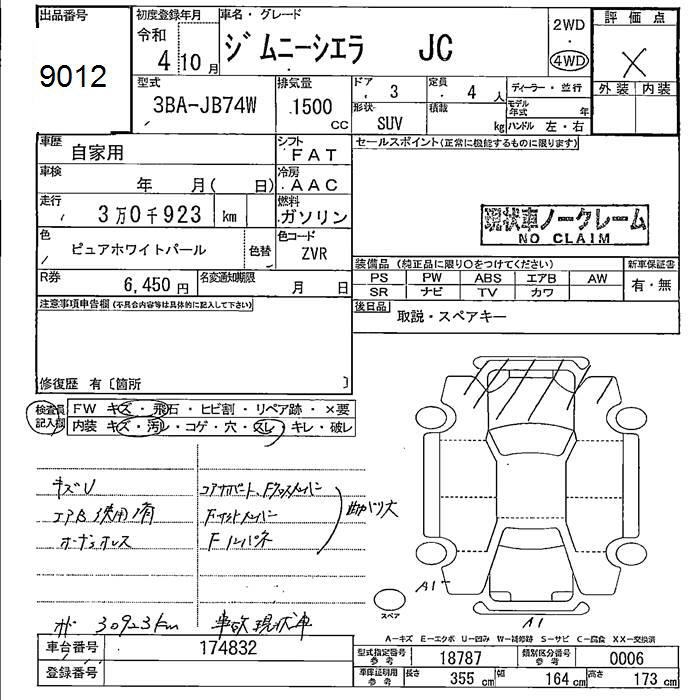 出品番号
9012
初度登録年月
令和
4 10 月
車名・グレード
ジムニーシエラ JC
2WD
・
4WD
評価点
X
外装 内装
型式
3BA-JB74W
排気量
1500
cc
ドア
3
定員
4 人
ディーラー・並行
形状
SUV
積載
kg
モデル
年式 年
ハンドル 左・右
車歴
自家用
シフト
FAT
車検
年 月( 日)
冷房
AAC
走行
3万0千923 km
燃料
ガソリン
色
ピュアホワイトパール
色替
色コード
ZVR
R券
6,450円
名変通知期限
月 日
セールスポイント(正常に機能するものに限ります)
現状車ノークレーム
NO CLAIM
装備品 (純正品に限り○をつけてください)
新車保証書
PS PW ABS エアB AW
SR ナビ TV カワ
有・無
後日品
取説・スペアキー
注意事項申告欄(不具合内容等は具体的に記入して下さい)
修復歴 有〔箇所 〕
検査員
記入欄
FW キズ・飛石・ヒビ割・リペア跡・×要
内装 キズ・汚レ・コゲ・穴・スレ・キレ・破レ
キズU
コアサポート、Fクロスメンバー
エアB使用済
Fサイドメンバー
ホーンホレス
Fインパネ
曲がり大
オド 30923km
車歴現状車
A1
A1
スペア
A-キズ E-エクボ U-凹み W-補修跡 S-サビ C-腐食 XX-交換済
車台番号
174832
登録番号
型式指定番号
参考
18787
類別区分番号
参考
0006
車庫証明用
参考
長さ
355 cm
幅
164 cm
高さ
173 cm